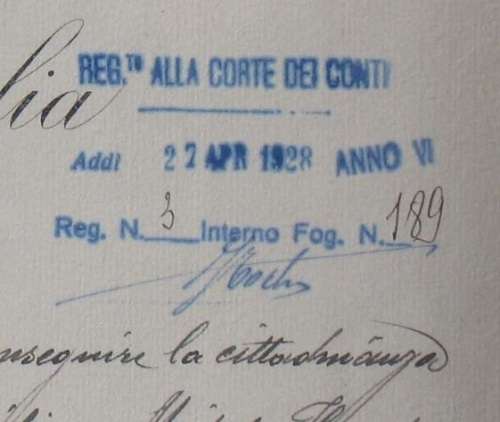 lia
REG.TO ALLA CORTE DEI CONTI
Addì 27 APR 1928 ANNO VI
Reg. N. 3 Interno Fog. N. 189
nseguire la cittadinanza